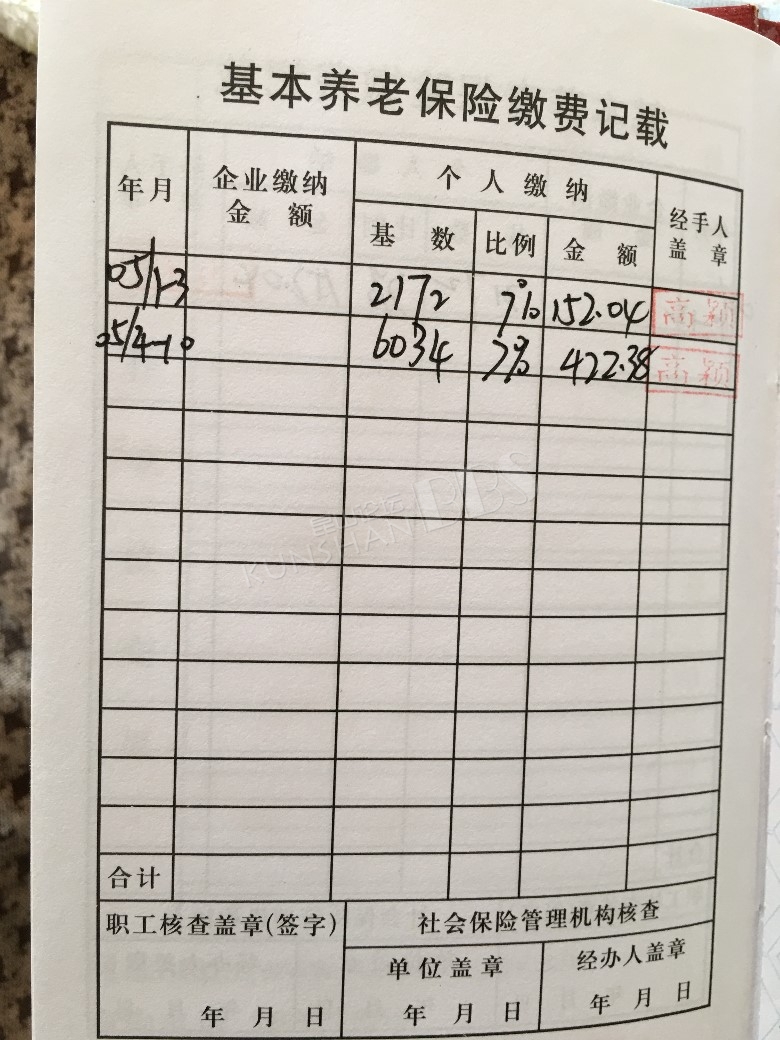 基本养老保险缴费记载
年月 企业缴纳金额 个人缴纳 经手人盖章
基数 比例 金额
05/1-3 2172 7% 152.04 高颖
05/4-10 6034 7% 422.38 高颖
昆山论坛 BBS
KUNSHAN
合计
职工核查盖章(签字) 社会保险管理机构核查
单位盖章 经办人盖章
年月日 年月日 年月日